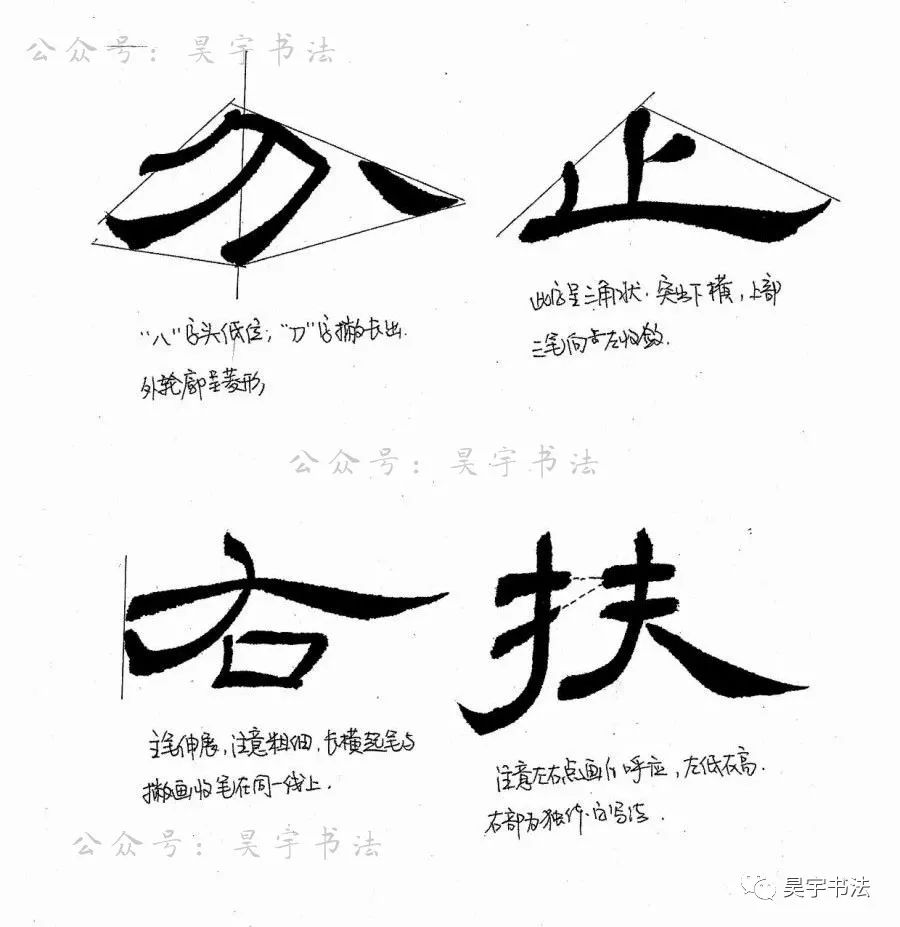 公众号：昊宇书法
分
止
“八”字头低位；“刀”字撇长出.
外轮廓呈菱形,
此字呈三角状. 突出下横, 上部
三笔向左收敛.
公众号：昊宇书法
右
扶
主笔伸展, 注意粗细, 长横起笔与
撇画收笔在同一线上.
注意左右点画的呼应, 左低右高.
右部为独体字写法.
公众号：昊宇书法
昊宇书法